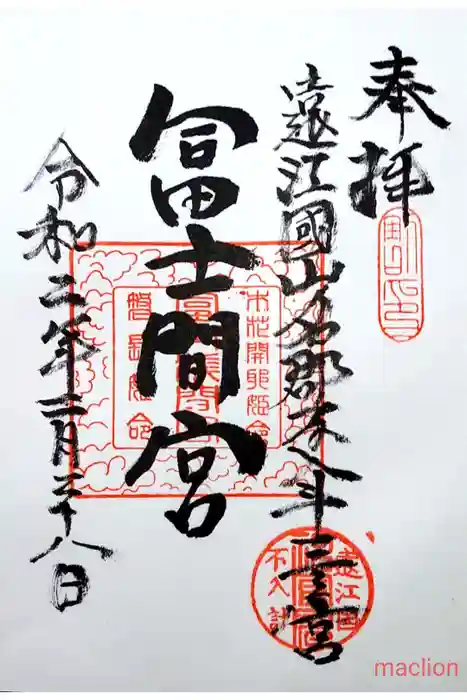 奉拝
遠江國山名郡不入斗三之宮
冨士間宮
令和二年二月二十八日
木花開耶姫命
磐長姫命
遠江国
不入計
maclion